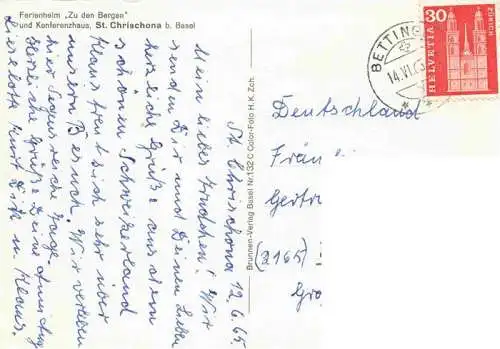 Ferienheim „Zu den Bergen"
und Konferenzhaus, St. Chrischona b. Basel
St. Chrischona 12.6.65
Mein liebes Trudchen! Wir
senden Dir und Deinen Lieben
herzliche Grüße aus dem
schönen Schweizerland
Klaus freut sich sehr über
unsern Besuch. Wir verleben
hier Segensreiche Tage.
Herzliche Grüße Deine
Lieselott Kurt Dirk u. Klaus.
Brunnen-Verlag Basel Nr.132 C Color-Foto H.K. Zch.
BETTING
14.VI.65
30
HELVETIA
ZÜRICH
Deutschland
Fräu
Gertr
(2165)
Gro